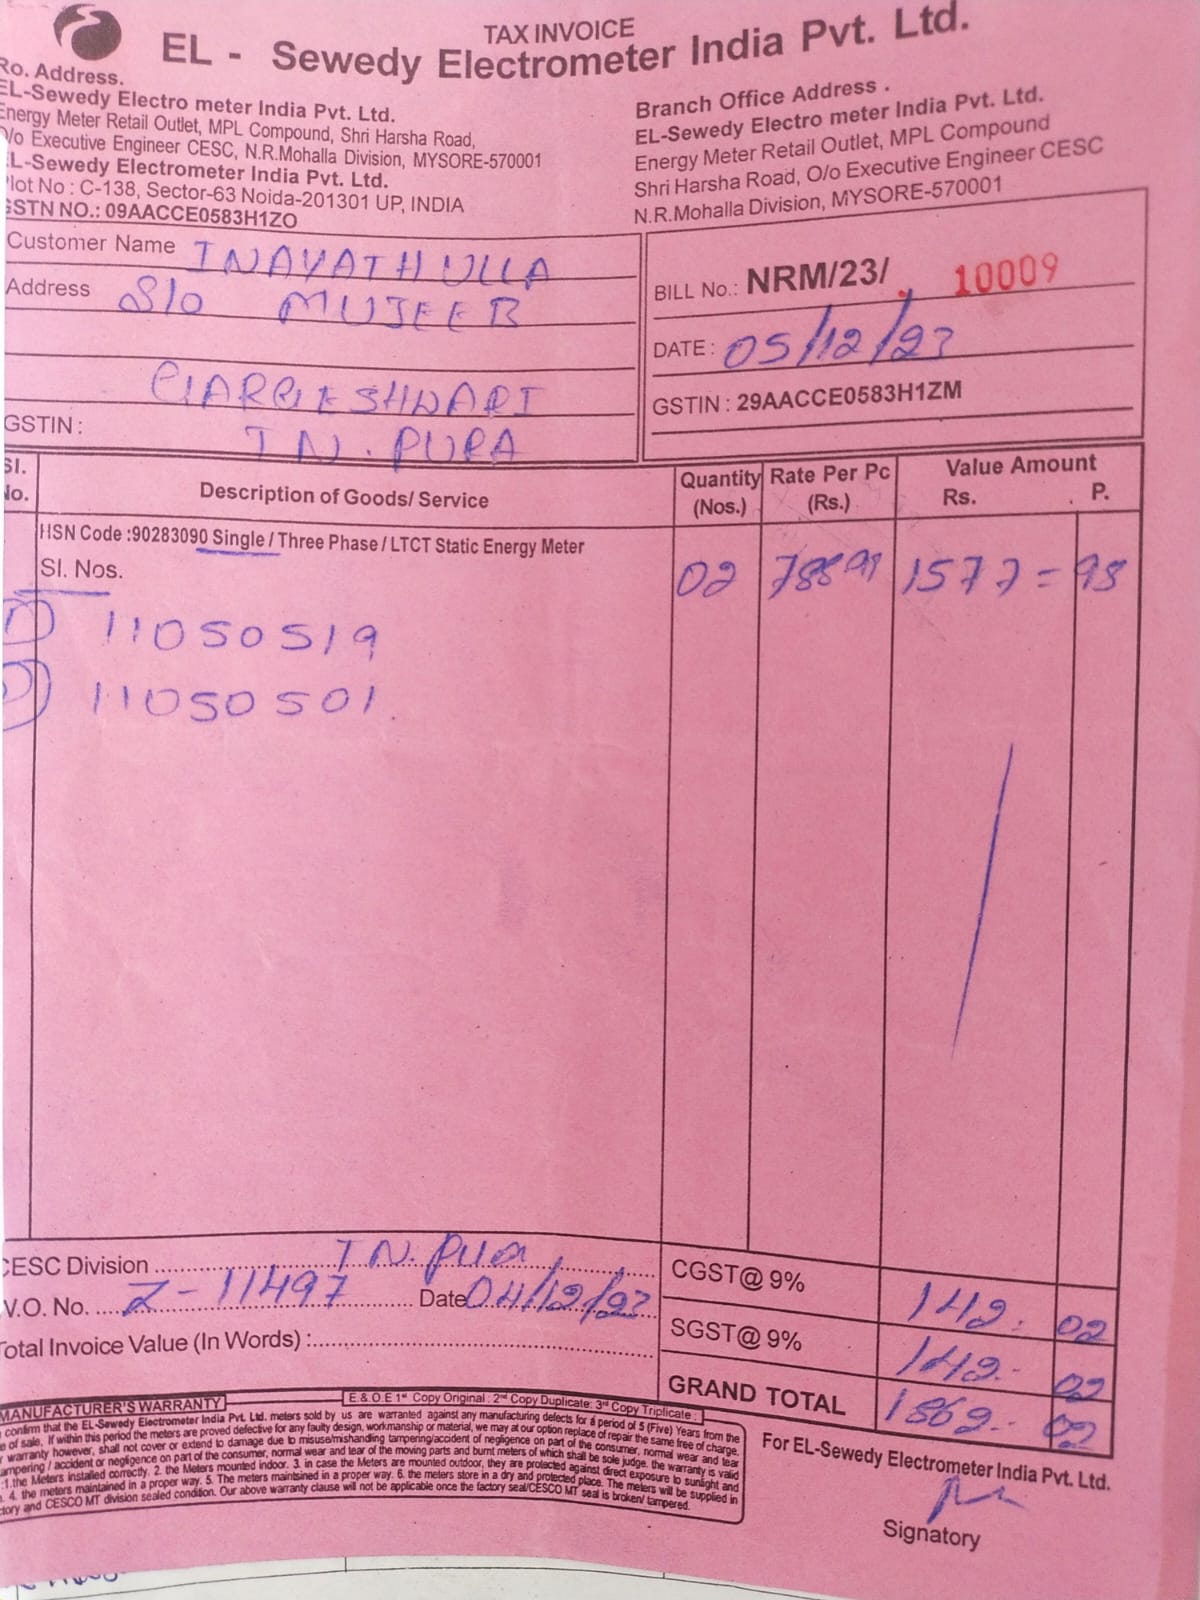 TAX INVOICE
EL - Sewedy Electrometer India Pvt. Ltd.
Ro. Address.
EL-Sewedy Electro meter India Pvt. Ltd.
Energy Meter Retail Outlet, MPL Compound, Shri Harsha Road,
O/o Executive Engineer CESC, N.R.Mohalla Division, MYSORE-570001
EL-Sewedy Electrometer India Pvt. Ltd.
Plot No : C-138, Sector-63 Noida-201301 UP, INDIA
GSTN NO.: 09AACCE0583H1ZO
Branch Office Address .
EL-Sewedy Electro meter India Pvt. Ltd.
Energy Meter Retail Outlet, MPL Compound
Shri Harsha Road, O/o Executive Engineer CESC
N.R.Mohalla Division, MYSORE-570001
Customer Name INAYATHULLA
Address S/o MUJEEB
GARGESHWARI
GSTIN : T N. PURA
BILL No.: NRM/23/ 10009
DATE : 05/12/23
GSTIN : 29AACCE0583H1ZM
Sl. No. Description of Goods/ Service Quantity (Nos.) Rate Per Pc (Rs.) Value Amount Rs. P.
HSN Code :90283090 Single / Three Phase / LTCT Static Energy Meter
Sl. Nos. 02 788 99 1577 = 98
1) 11050519
2) 11050501
CESC Division T N. Pura
W.O. No. Z-11497 Date 04/12/23
Total Invoice Value (In Words) :
CGST@ 9% 142. 02
SGST@ 9% 142. 02
GRAND TOTAL 1862. 02
E & O E 1st Copy Original : 2nd Copy Duplicate: 3rd Copy Triplicate :
MANUFACTURER'S WARRANTY
confirm that the EL-Sewedy Electrometer India Pvt. Ltd. meters sold by us are warranted against any manufacturing defects for a period of 5 (Five) Years from the
of sale. If within this period the meters are proved defective for any faulty design, workmanship or material, we may at our option replace of repair the same free of charge.
warranty however, shall not cover or extend to damage due to misuse/mishandling tampering/accident of negligence on part of the consumer, normal wear and tear
tampering / accident or negligence on part of the consumer, normal wear and tear of the moving parts and burnt meters of which shall be sole judge. the warranty is valid
:1.the Meters installed correctly. 2. the Meters mounted indoor. 3. in case the Meters are mounted outdoor, they are protected against direct exposure to sunlight and
. 4. the meters maintained in a proper way. 5. The meters maintsined in a proper way. 6. the meters store in a dry and protected place. The meters will be supplied in
factory and CESCO MT division sealed condition. Our above warranty clause will not be applicable once the factory seal/CESCO MT seal is broken/ tampered.
For EL-Sewedy Electrometer India Pvt. Ltd.
Signatory